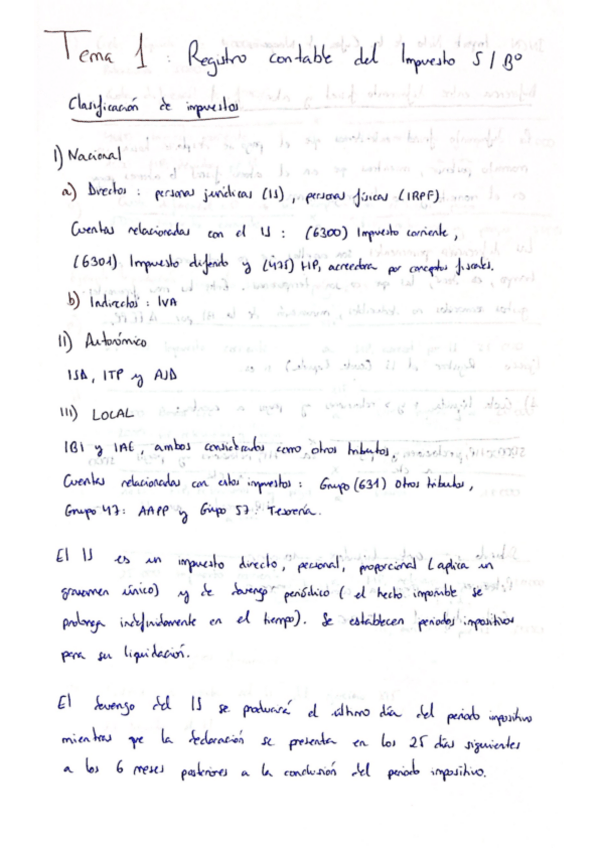 Tema 1 : Registro contable del Impuesto S/Bº
Clasificación de impuestos
I) Nacional
a) Directos : personas jurídicas (IS), personas físicas (IRPF)
Cuentas relacionadas con el IS : (6300) Impuesto corriente,
(6301) Impuesto diferido y (475) HP, acreedora por conceptos fiscales.
b) Indirectos : IVA
II) Autonómico
ISD, ITP y AJD
III) LOCAL
IBI y IAE, ambos considerados como otros tributos.
Cuentas relacionadas con estos impuestos : Grupo (631) Otros tributos,
Grupo 47: AAPP y Grupo 57: Tesorería.
El IS es un impuesto directo, personal, proporcional (aplica un
gravamen único) y de devengo periódico ( el hecho imponible se
prolonga indefinidamente en el tiempo). Se establecen periodos impositivos
para su liquidación.
El devengo del IS se producirá el último día del periodo impositivo
mientras que la declaración se presenta en los 25 días siguientes
a los 6 meses posteriores a la conclusión del periodo impositivo.